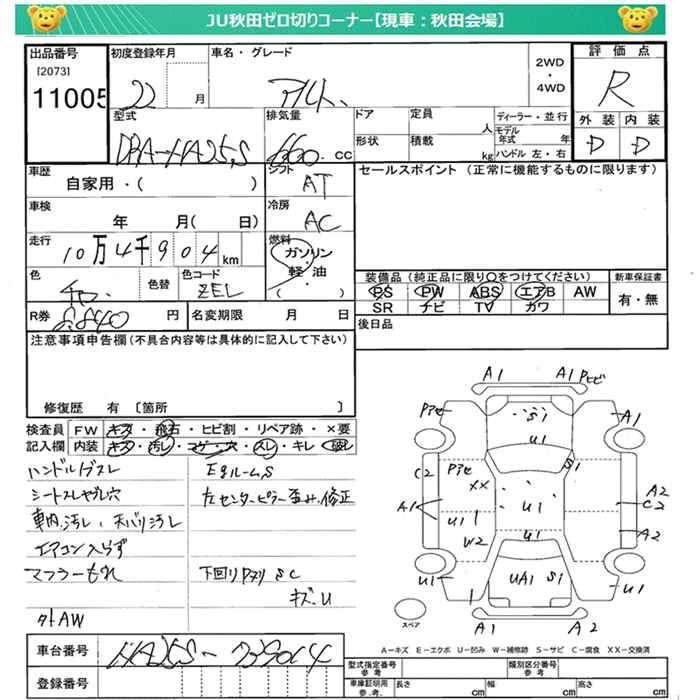 JU秋田ゼロ切りコーナー【現車：秋田会場】
出品番号
[2073]
11005
初度登録年月
22 月
車名・グレード
アルト
2WD
・
4WD
評価点
R
型式
DBA-HA25S
排気量
660 cc
ドア
定員
人
形状
積載
kg
ディーラー・並行
モデル年式 年
ハンドル 左・右
外装 内装
D D
車歴
自家用・( )
シフト
AT
セールスポイント (正常に機能するものに限ります)
車検
年 月( 日)
冷房
AC
走行
10万4千904km
燃料
ガソリン
・
軽・油
( )
色
色替
色コード
ZEL
装備品 (純品品に限り○をつけてください)
PS PW ABS エアB AW
SR ナビ TV カワ
新車保証書
有・無
R券
8840円
名変期限 月 日
後日品
注意事項申告欄(不具合内容等は具体的に記入して下さい)
修復歴 有 〔箇所 〕
検査員記入欄
FW キズ・飛石・ヒビ割・リペア跡・×要
内装 キズ・汚レ・コゲ・穴・スレ・キレ・破レ
ハンドルスレ
シートスレヤブレ穴
車内汚レ、天バリ汚レ
エアコン入らず
マフラーもれ
社外AW
EgルームS
左センターピラー歪み、修正
下回りPヌリ S C
キズ、U
A1
A1 Pヒビ
Pアセ
S1
A1
U1
S1
C2
Pアセ
XX
A1
U1
U1
A2
C2
U1
W2
A2
U1
UA1 S1
U1
A1
A2
スペア
A－キズ E－エクボ U－凹み W－補修跡 S－サビ C－腐食 XX－交換済
車台番号
HA25S-739014
登録番号
型式指定番号
参考
類別区分番号
参考
車庫証明用
参考.
長さ cm
幅 cm
高さ cm